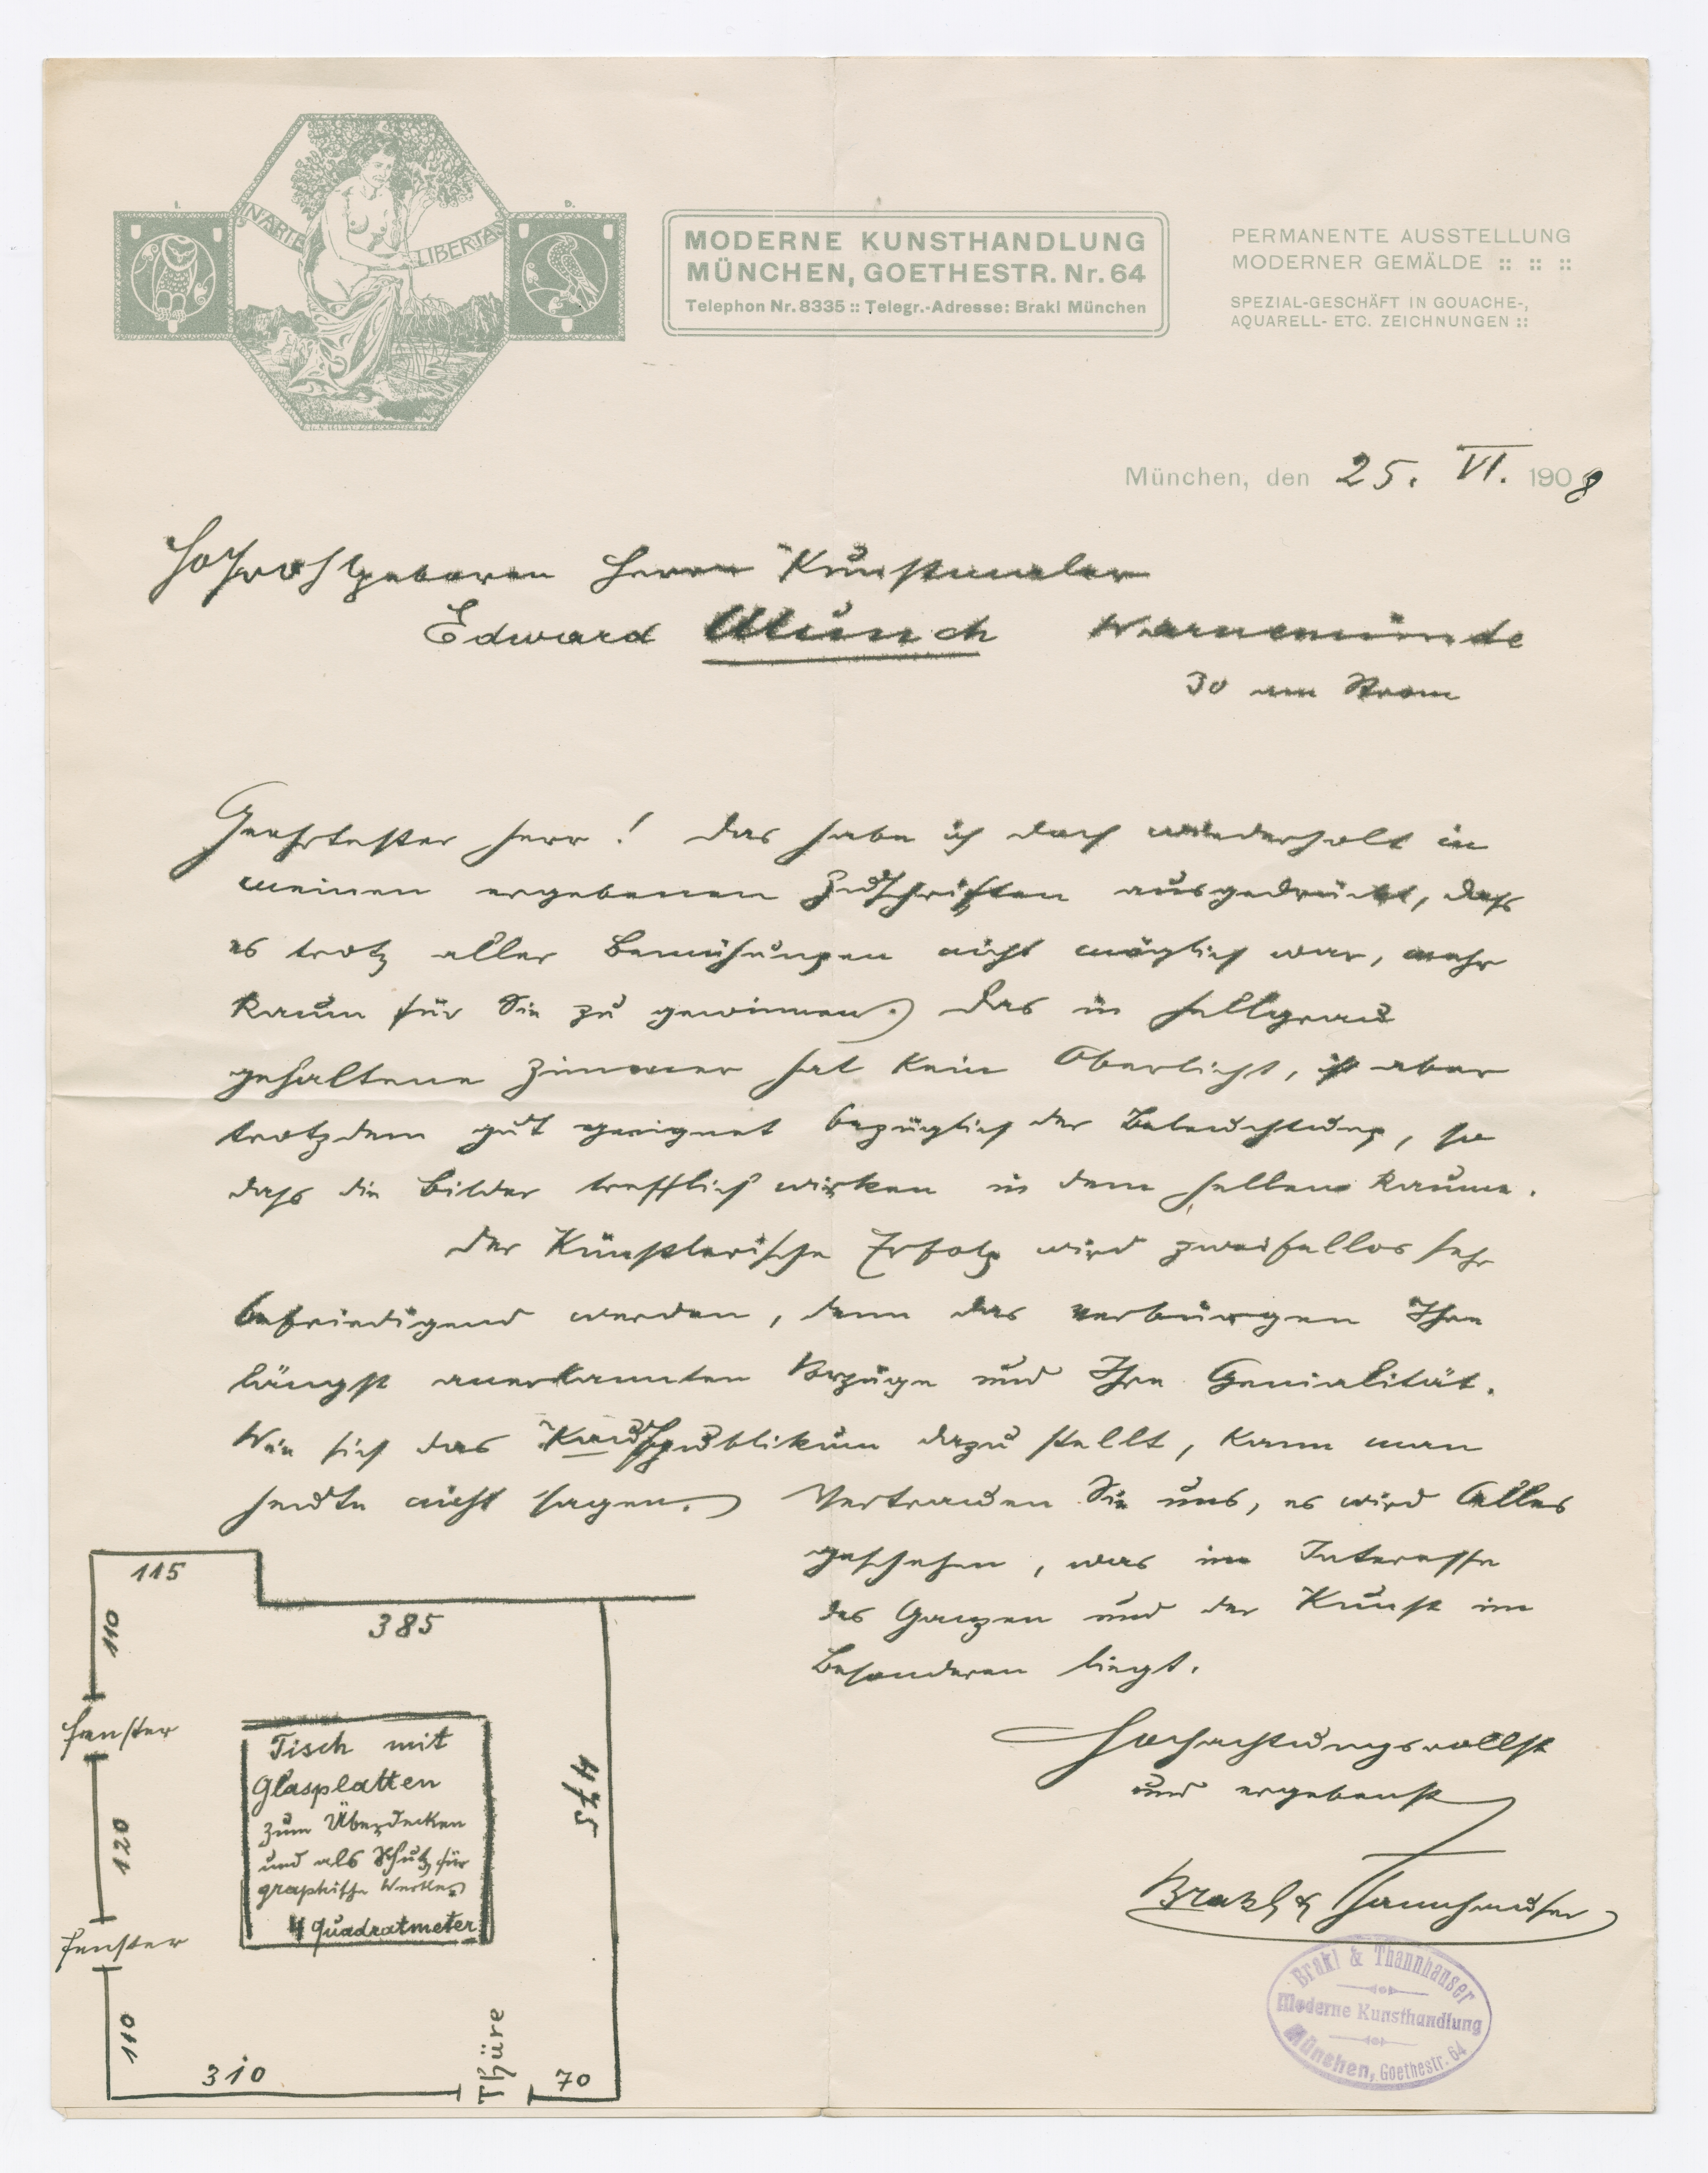 I. D.
IN ARTE LIBERTAS
MODERNE KUNSTHANDLUNG
MÜNCHEN, GOETHESTR. Nr. 64
Telephon Nr. 8335 :: Telegr.-Adresse: Brakl München
PERMANENTE AUSSTELLUNG
MODERNER GEMÄLDE :: :: ::
SPEZIAL-GESCHÄFT IN GOUACHE-,
AQUARELL- ETC. ZEICHNUNGEN ::
München, den 25. VI. 1908
Hochwohlgeboren Herrn Kunstmaler
Edward Munch Warnemünde
30 am Strom
Geehrtester Herr! Das habe ich doch wiederholt in
meinen ergebenen Zuschriften ausgedrückt, dass
es trotz aller Bemühungen nicht möglich war, mehr
Raum für Sie zu gewinnen. Das in hellgrau
gehaltene Zimmer hat kein Oberlicht, ist aber
trotzdem gut geeignet bezüglich der Beleuchtung, so
dass die Bilder trefflich wirken in dem hellen Raume.
Der Künstlerische Erfolg wird zweifellos sehr
befriedigend werden, denn das verbürgen Ihre
längst anerkannten Vorzüge und Ihre Genialität.
Wie sich das Kaufpublikum dazu stellt, kann man
heute nicht sagen. Vertrauen Sie uns, es wird Alles
geschehen, was im Interesse
des Ganzen und der Kunst im
Besonderen liegt.
Hochachtungsvollst
und ergebenst
Brakl & Thannhauser
115
110
385
Fenster
120
475
Tisch mit
Glasplatten
zum Überdecken
und als Schutz für
graphische Werke.
4 Quadratmeter
Fenster
110
310
Thüre
70
Brakl & Thannhauser
Moderne Kunsthandlung
München, Goethestr. 64